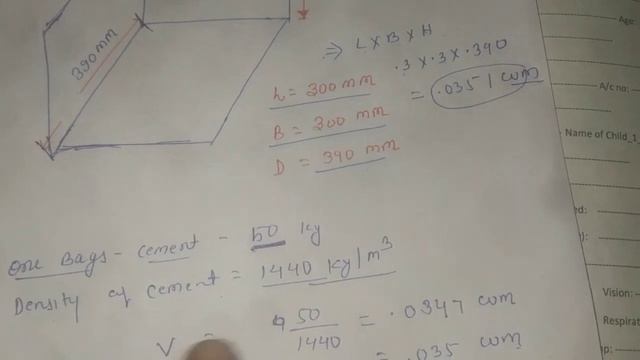 390mm
⇒ L X B X H
.3 X .3 X .390
= .0351 cum
L = 300 mm
B = 300 mm
D = 390 mm
One Bags - cement - 50 kg
Density of cement = 1440 kg/m³
V = 50/1440 = .0347 cum
= .035 cum
Age
A/c no:
Name of Child_1_
Vision:
Respirat